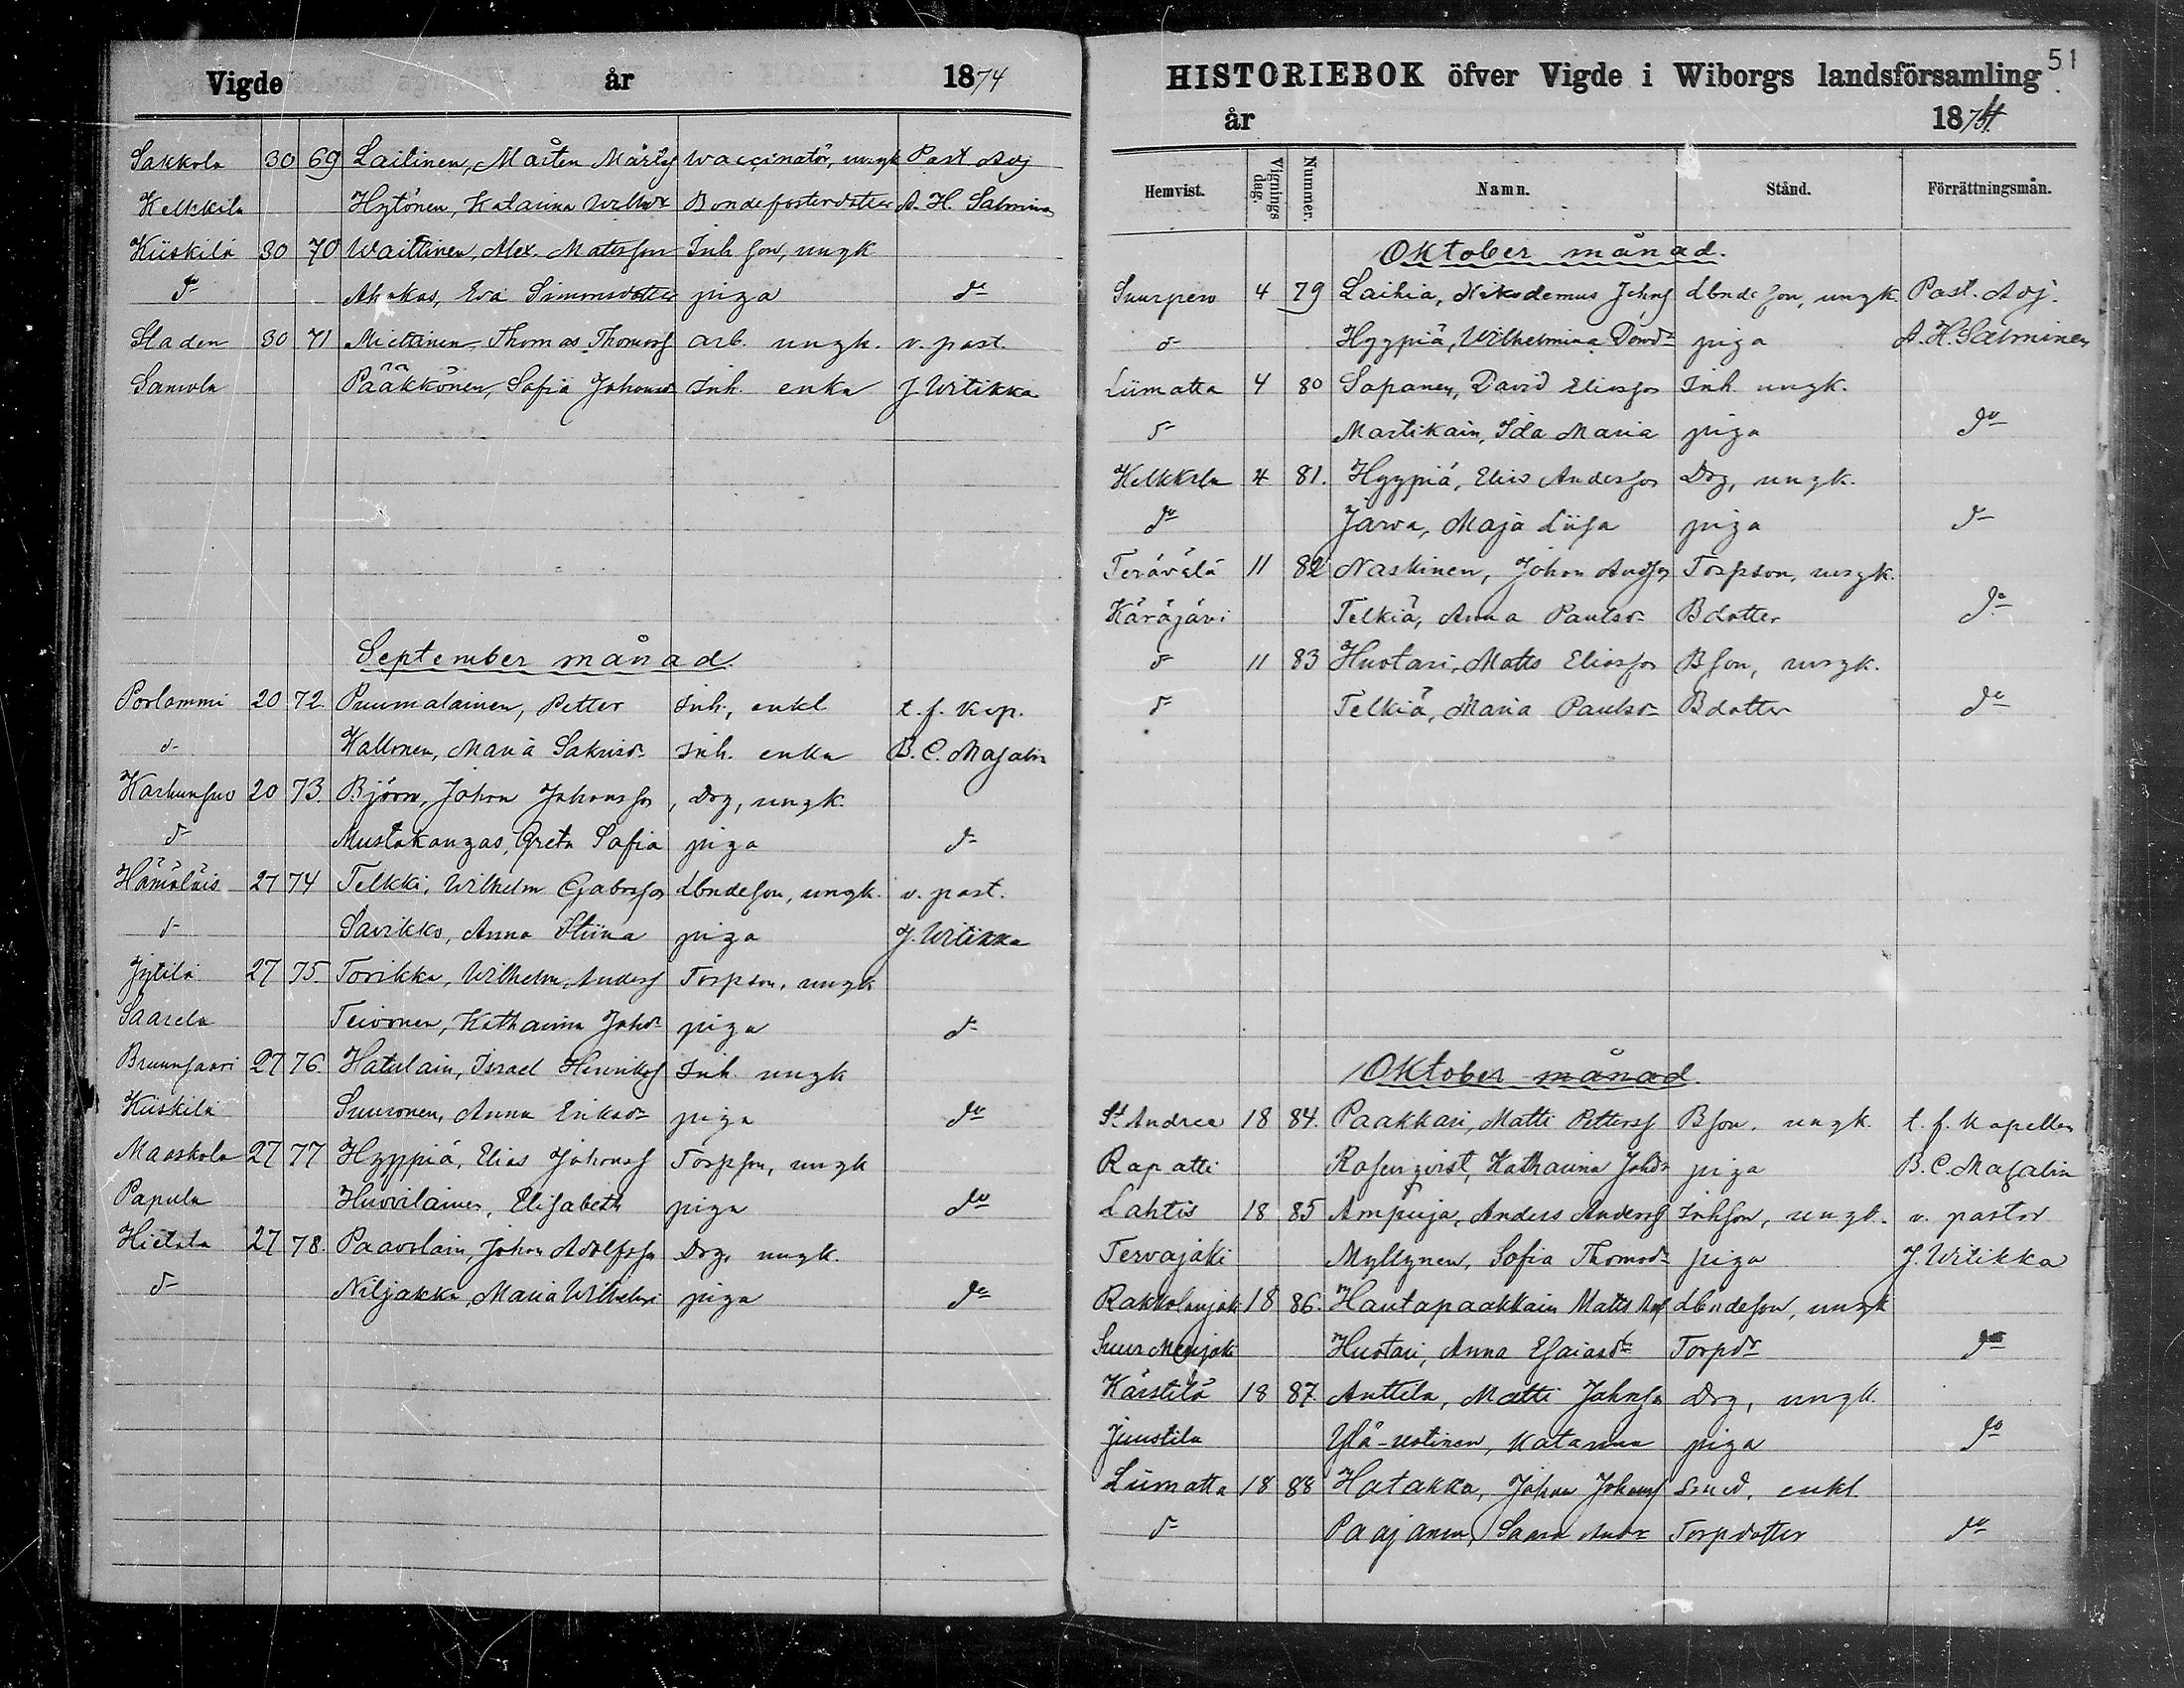 Vigde år 1874
Sakkola 30 69 Laitinen, Mårten Mårtsf waccinatör, ungk Past Adj
Kelkkila Hytönen, Katarina Wilhdr Bondefosterdotter A. H. Salminen
Kiiskilä 30 70 Waittinen, Alex. Matsson Inh son, ungk
do Ahokas, Eva Simonsdotter piga do
Staden 30 71 Miettinen, Thomas Thomasf arb. ungk. v. past.
Samola Pääkkönen, Sofia Johansd Inh. enka J. Witikka
September månad.
Porlammi 20 72. Puumalainen, Petter Inh, enkl t. f. Kap.
do Kallonen, Maria Sakrisdr Inh. enka B. C. Masalin
Karhunsuo 20 73. Björn, Johan Johansson, Drg, ungk.
do Mustakangas, Greta Sofia piga do
Hämäläis 27 74 Telkki, Wilhelm Gabrsson Lbndeson, ungk. v. past.
do Savikko, Anna Stiina piga J. Witikka
Jytilä 27 75. Torikka, Wilhelm Andersf Torpson, ungk
Saarela Teivonen, Katharina Johdr piga do
Bruunsaari 27 76. Hatulain, Israel Henriksf Inh. ungk
Kiiskilä Suuronen, Anna Eriksdr piga do
Maaskola 27 77 Hyppiä, Elias Johansf Torpson, ungk
Papula Huovilainen, Elisabeth piga do
Hietala 27 78. Paavolain, Johan Adolfsson Drg, ungk.
do Niljakka, Maria Wilhelmi piga do
51
HISTORIEBOK öfver Vigde i Wiborgs landsförsamling
år 1874.
Hemvist. Vignings dag. Nummer. Namn. Stånd. Förrättningsmän.
Oktober månad.
Suurpero 4 79 Laihia, Nikodemus Johsf Lbnde son, ungk. Past. Adj.
do Hyypiä, Wilhelmina Davdr piga A. H. Salminen
Liimatta 4 80 Sapanen, David Eliasson Inh. ungk.
do Martikain, Ida Maria piga do
Kelkkela 4 81. Hyypiä, Elias Andersson Drg, ungk.
do Jarva, Maja Liisa piga do
Terävälä 11 82 Naskinen, Johan Andsson Torpson, ungk.
Käräjävi Telkiä, Anna Paulsdr Bdotter do
do 11 83 Huotari, Matts Eliasson Bson, ungk.
do Telkiä, Maria Paulsdr Bdotter do
Oktober månad.
St Andree 18 84. Paakkari, Matti Pettersf Bson, ungk. t. f. Kapellan
Rapatti Rosenqvist, Katharina Johdr piga B. C. Masalin
Lahtis 18 85 Ampuja, Anders Andersf Inhson, ungk. v. pastor
Tervajäki Myllynen, Sofia Thomasdr piga J. Witikka
Rakkolanjok 18 86. Hautapaakkain Matts Lbndeson, ungk
Suur Merijoki Huotari, Anna Esaiasdr Torpdr do
Kärstilä 18 87. Anttila, Matti Johnson Drg, ungk.
Juustila Ylä-uotinen, Katarina piga do
Liimatta 18 88 Hatakka, Johan Johansf enkl.
do Paajanen, Saara Andr Torpdotter do